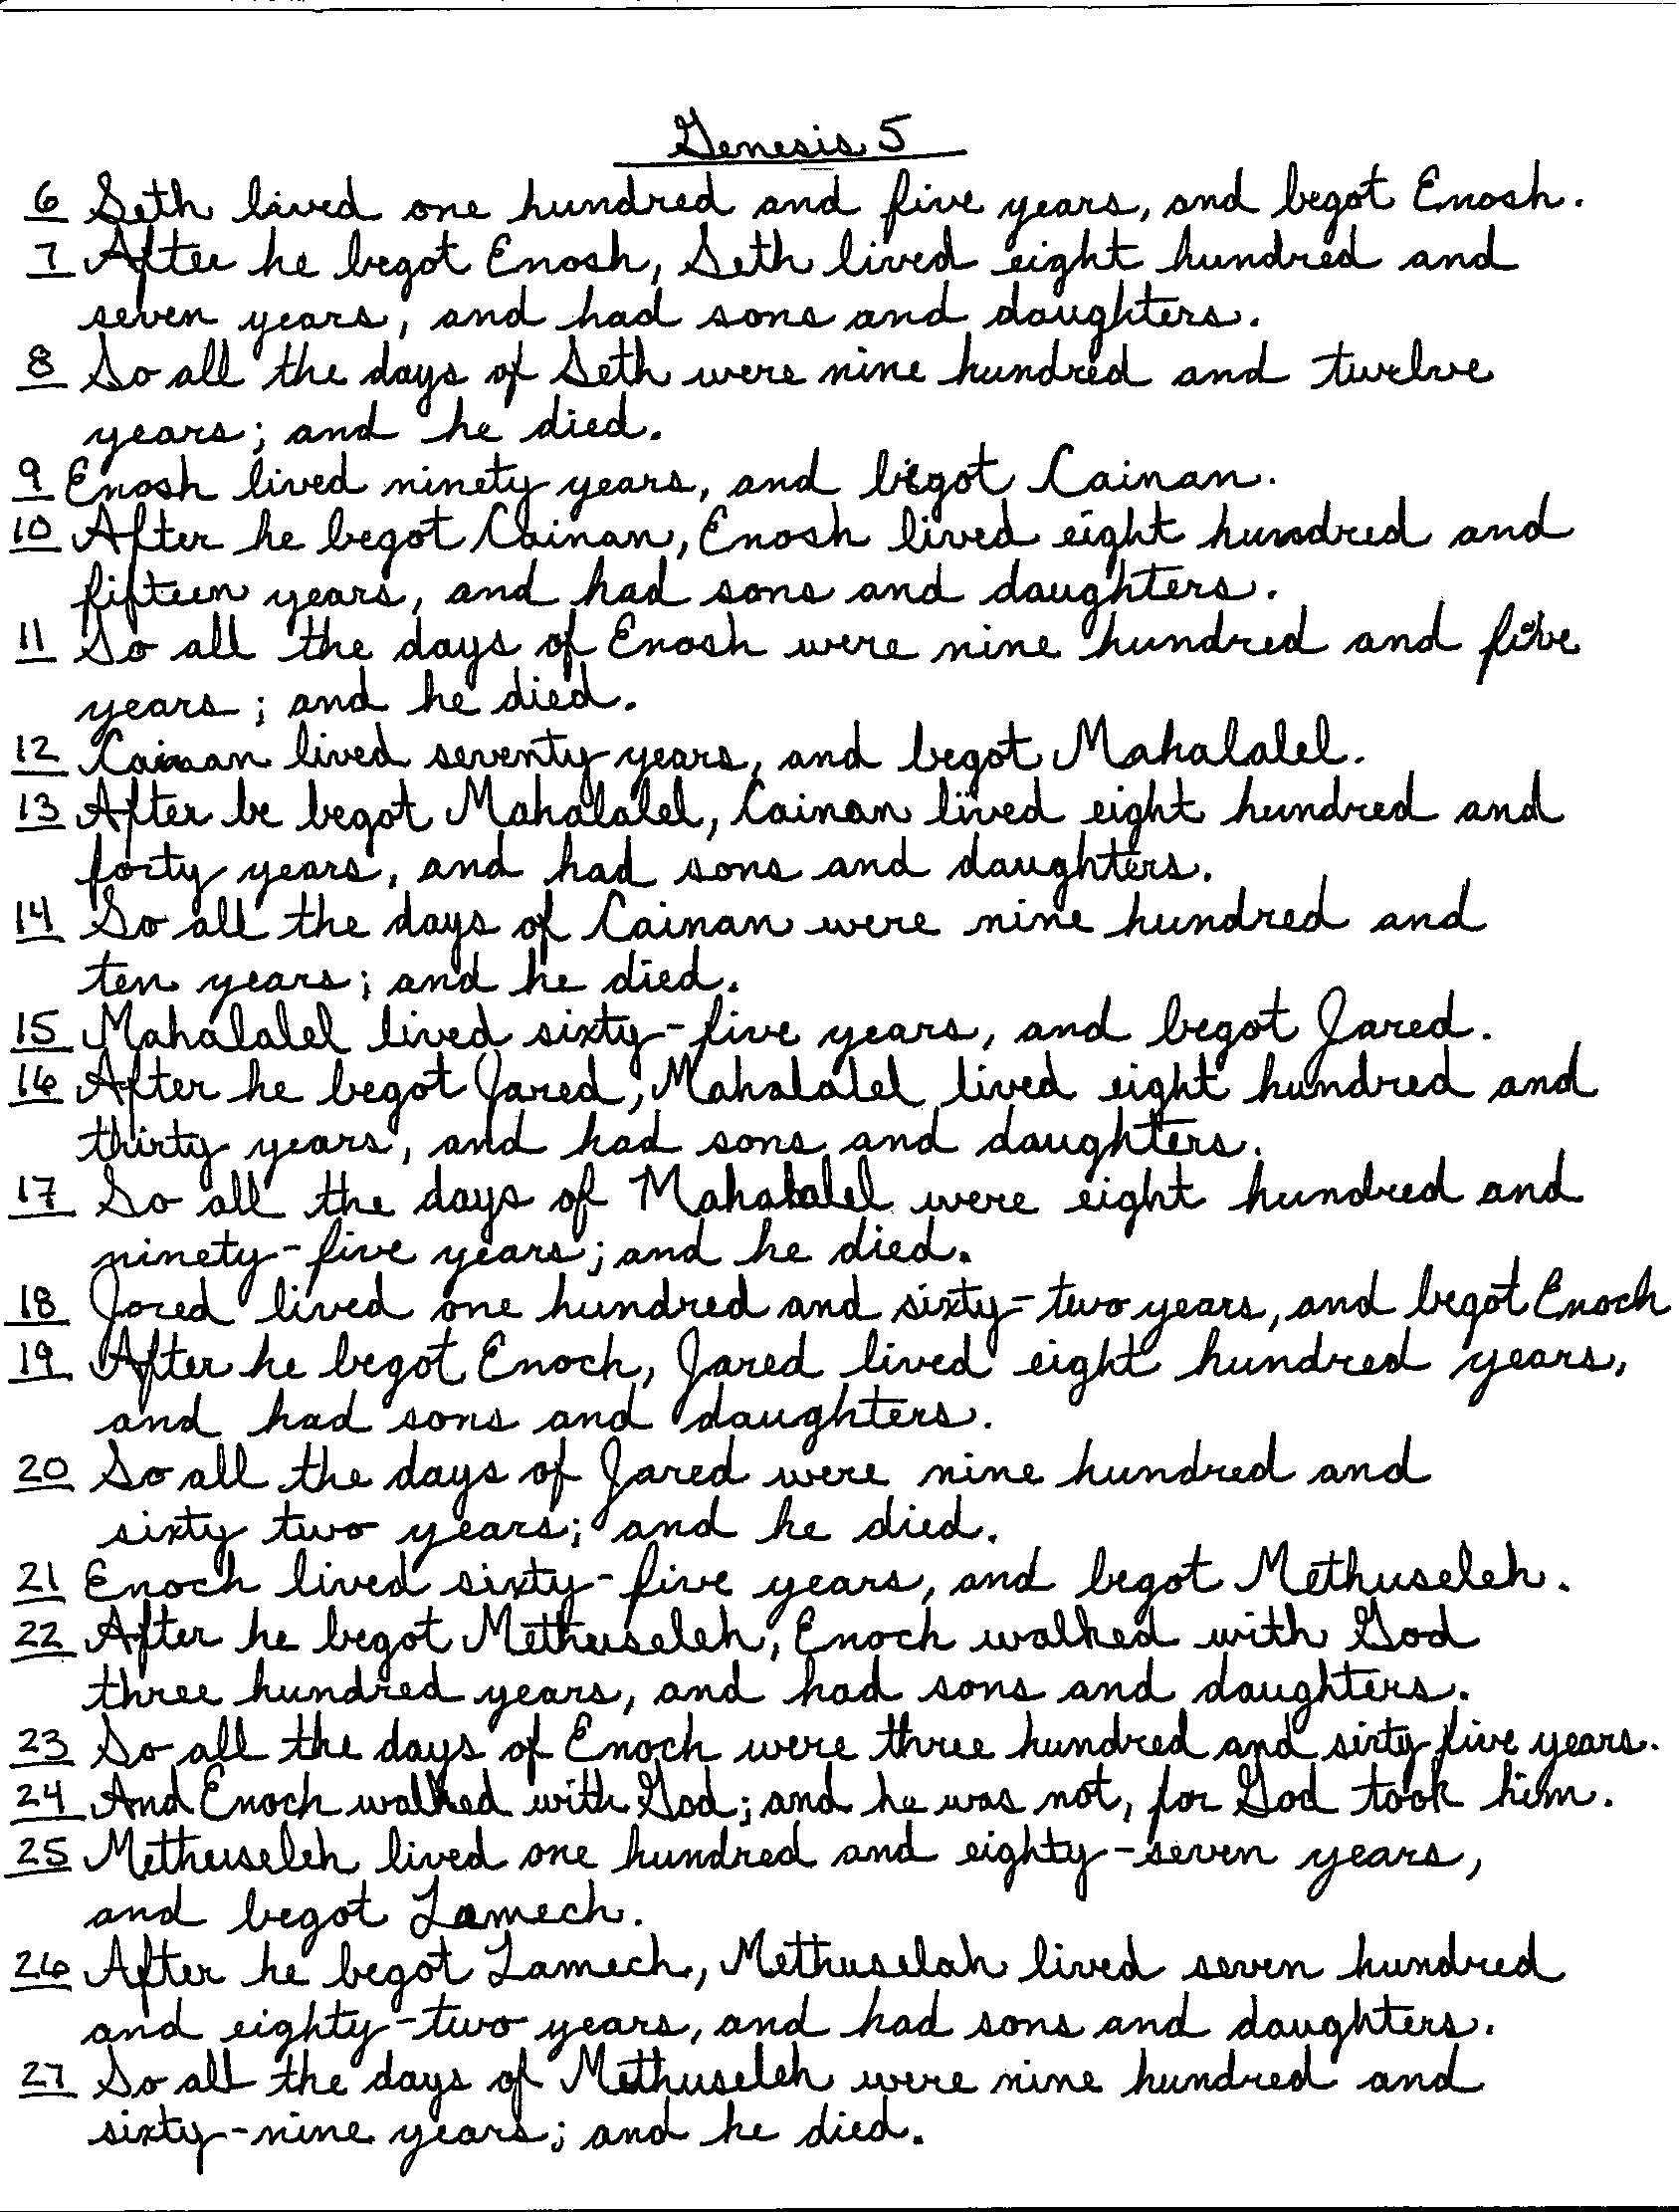 Genesis 5
6 Seth lived one hundred and five years, and begot Enosh.
7 After he begot Enosh, Seth lived eight hundred and
seven years, and had sons and daughters.
8 So all the days of Seth were nine hundred and twelve
years; and he died.
9 Enosh lived ninety years, and begot Cainan.
10 After he begot Cainan, Enosh lived eight hundred and
fifteen years, and had sons and daughters.
11 So all the days of Enosh were nine hundred and five
years; and he died.
12 Cainan lived seventy years, and begot Mahalalel.
13 After be begot Mahalalel, Cainan lived eight hundred and
forty years, and had sons and daughters.
14 So all the days of Cainan were nine hundred and
ten years; and he died.
15 Mahalalel lived sixty-five years, and begot Jared.
16 After he begot Jared, Mahalalel lived eight hundred and
thirty years, and had sons and daughters.
17 So all the days of Mahalalel were eight hundred and
ninety-five years; and he died.
18 Jared lived one hundred and sixty-two years, and begot Enoch
19 After he begot Enoch, Jared lived eight hundred years,
and had sons and daughters.
20 So all the days of Jared were nine hundred and
sixty two years; and he died.
21 Enoch lived sixty-five years, and begot Methuseleh.
22 After he begot Methuseleh, Enoch walked with God
three hundred years, and had sons and daughters.
23 So all the days of Enoch were three hundred and sixty five years.
24 And Enoch walked with God; and he was not, for God took him.
25 Methuseleh lived one hundred and eighty-seven years,
and begot Lamech.
26 After he begot Lamech, Methuselah lived seven hundred
and eighty-two years, and had sons and daughters.
27 So all the days of Methuseleh were nine hundred and
sixty-nine years; and he died.